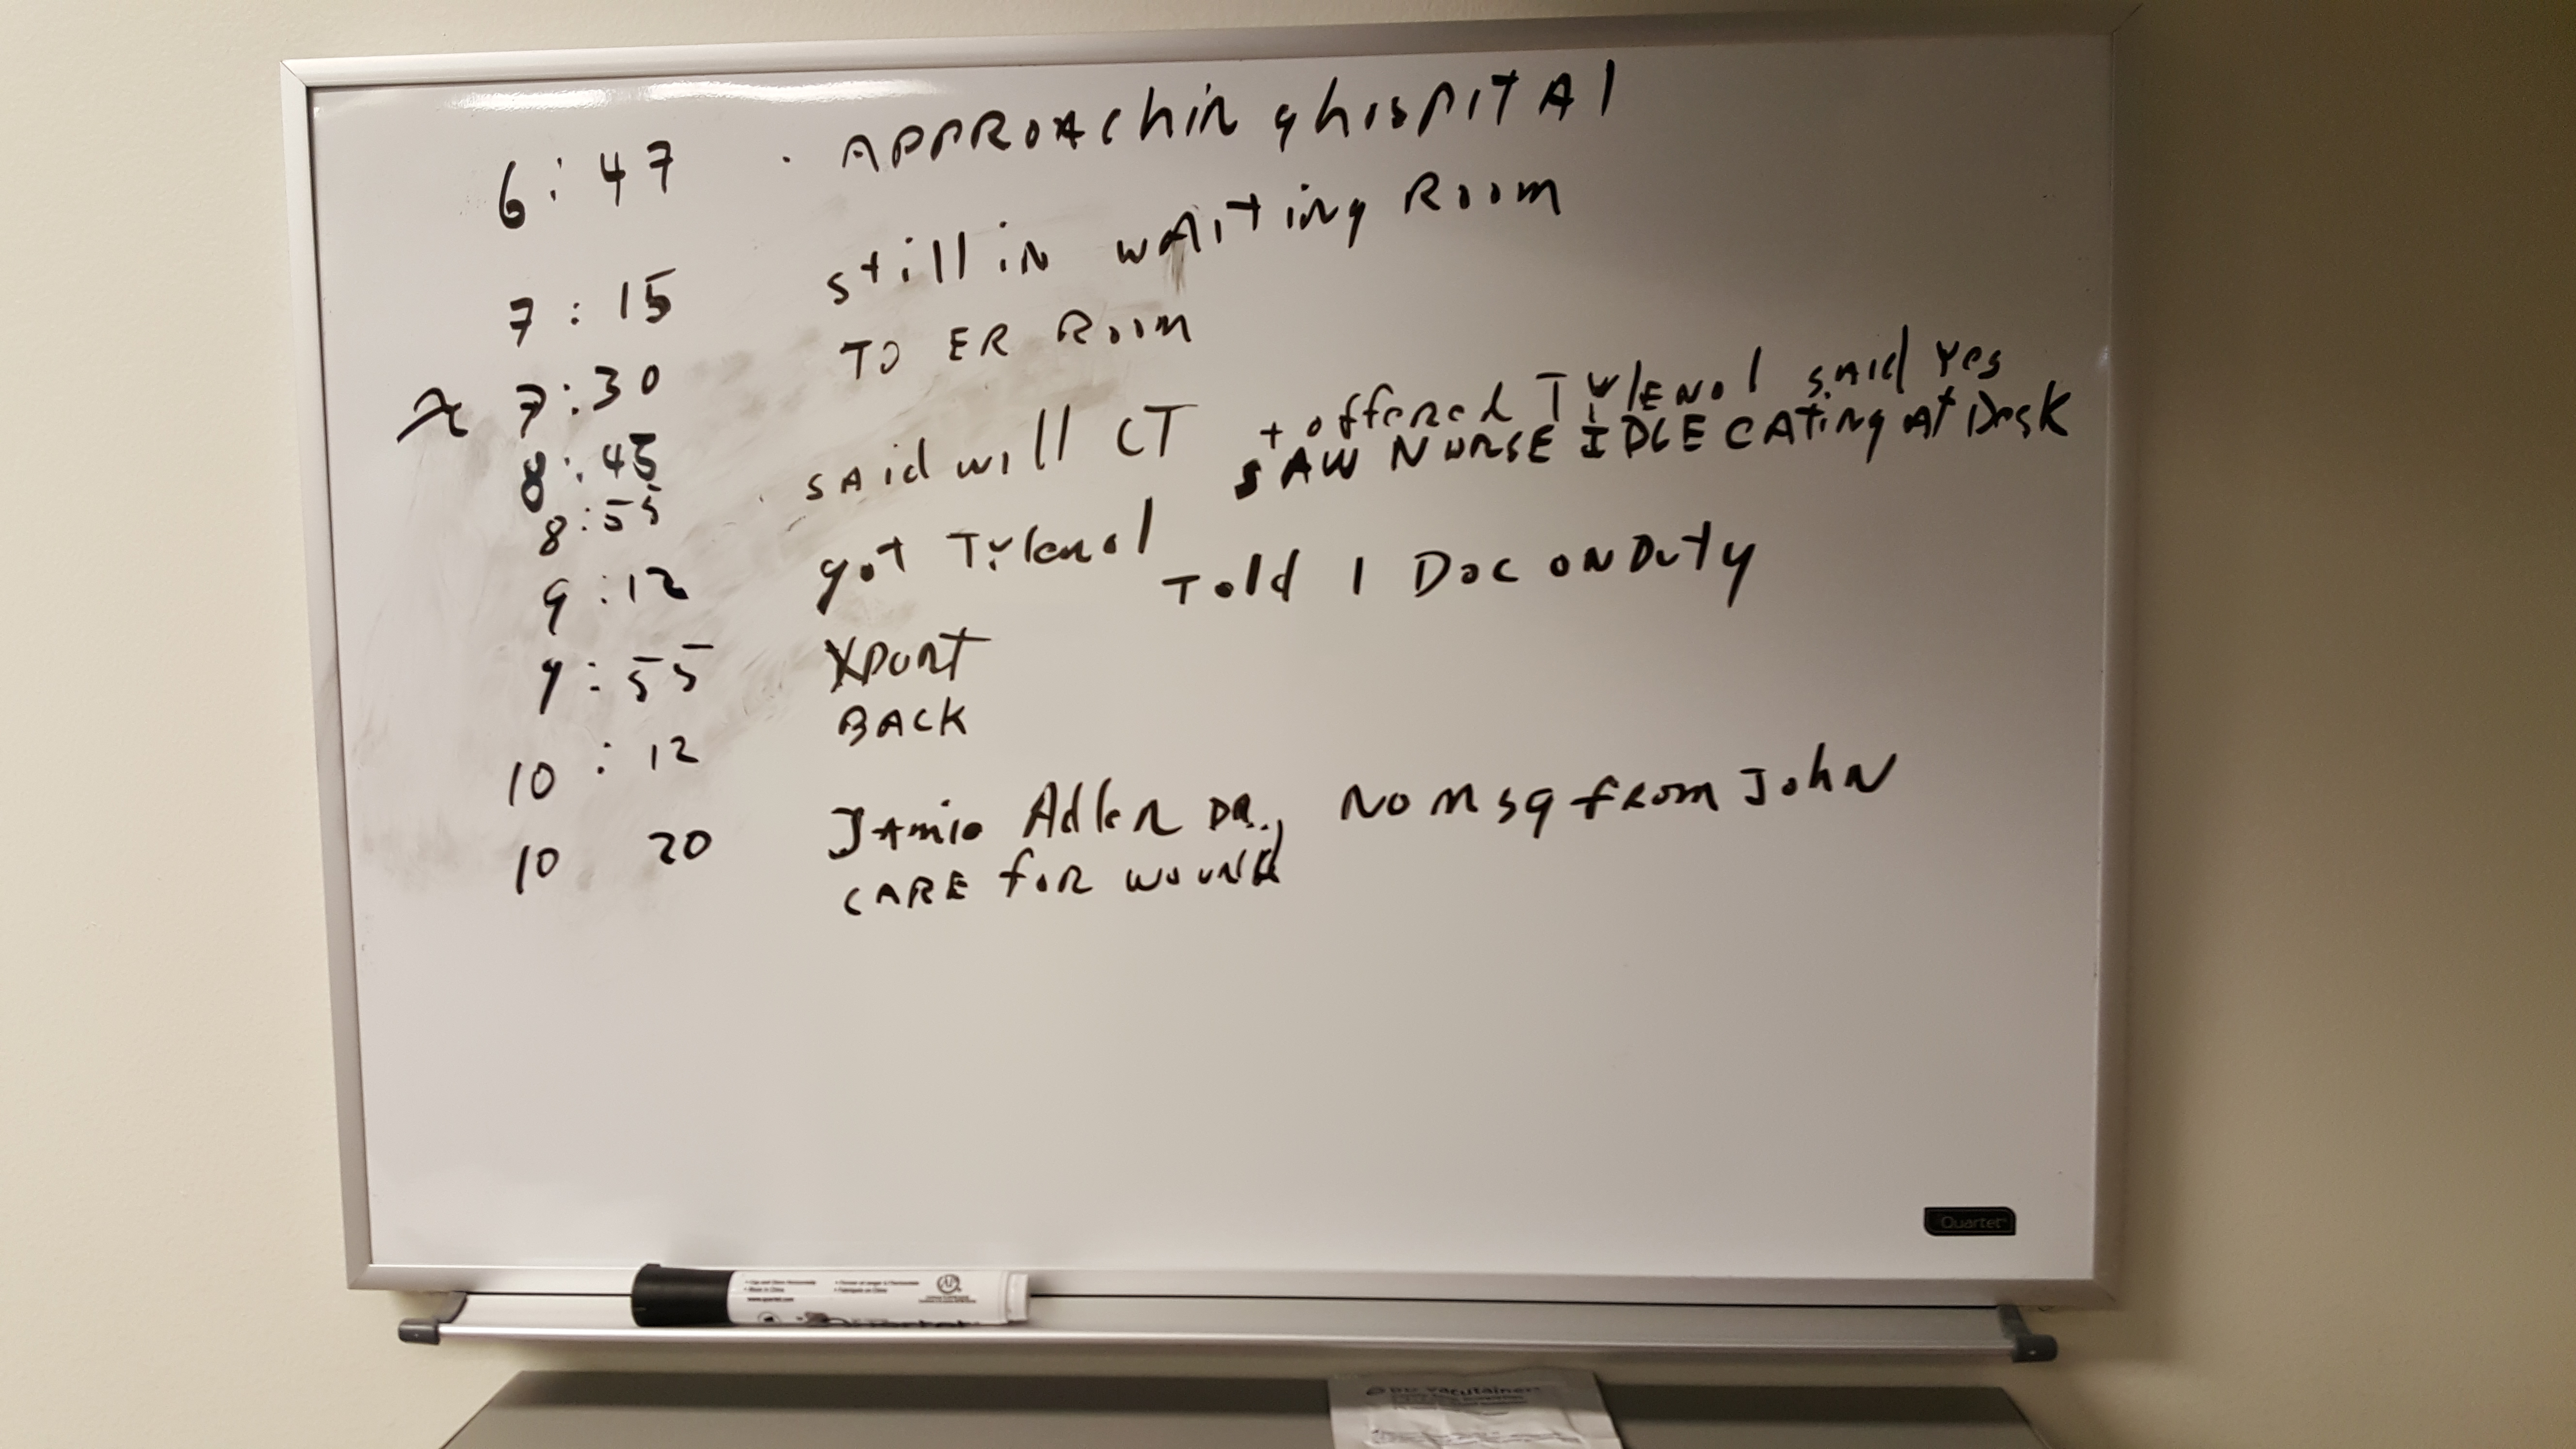 6:47 . APPROAChing hospITAl
7:15 still in wAiting Room
~ 7:30 TO ER Room
8:45 sAid will CT + offered TylENol said Yes
8:55 SAW NURSE IDLE EATiNg At Desk
9:12 got Tylenol Told 1 Doc ON Duty
9:55 XPORT
10:12 BACK
10 20 JAmie Adler DR., No msg from JohN
CARE for wound
Quartet
BD Vacutainer